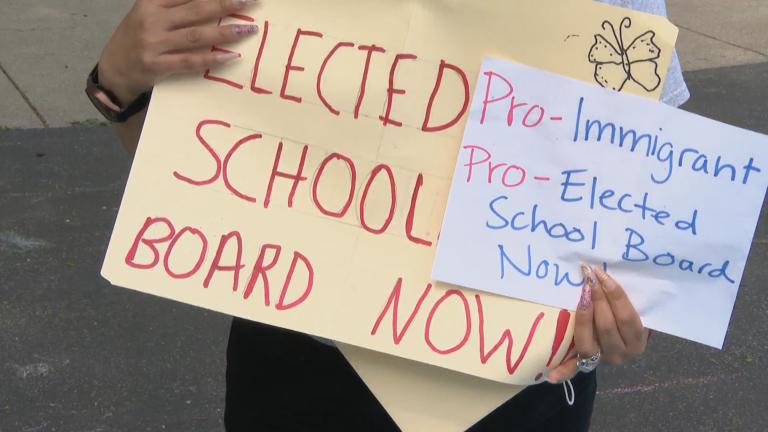 ELECTED
SCHOOL
BOARD NOW!!
Pro-Immigrant
Pro-Elected
School Board
Now!